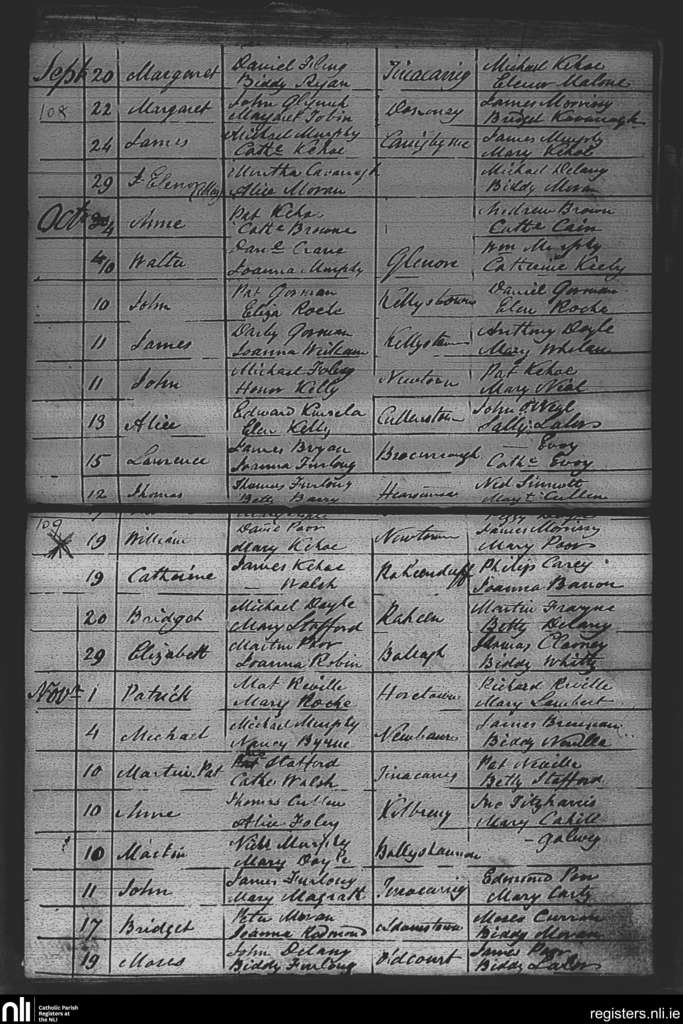 Sept 20 Margaret Daniel Foley Tinacarrig Michael Kehoe
Biddy Ryan Elenor Malone
108 22 Margaret John James Morrissy
Margaret Tobin Bridget Kavanagh
24 James Michael Murphy James Murphy
Cathe Kehoe Mary Kehoe
29 Elenor (May) Murtha Cavanagh Michael Delany
Alice Moran Biddy Moran
Oct 4 Anne Pat Kehoe Andrew Brown
Cathe Browne Cathe Cain
10 Walter Crane Glenore Wm Murphy
Joanna Murphy Catherine
10 John Pat Gorman Kellystown Daniel Gorman
Eliza Roche Elen Roche
11 James Darby Gorman Kellystown Anthony Doyle
Joanna Mary Whelan
11 John Michael Foley Newtown Pat Kehoe
Honor Kelly Mary Neal
13 Alice Edward Kinsela Cullenstown John O'Neyl
Elen Kelly Sally Lalor
15 Laurence James Bryan Evoy
Joanna Furlong Cathe Evoy
12 Thomas Thomas Furlong Ned Sinnott
Betty Barry Mary Cullen
109
19 William Poor Newtown James Morrissy
Mary Kehoe Mary Poor
19 Catherine James Kehoe Raheenduff Philip Carey
Walsh Joanna Barron
20 Bridget Michael Doyle Raheen Martin Frayne
Mary Stafford Betty Delany
29 Elizabeth Martin Poor Balleagh Clooney
Joanna Robin Biddy Whitty
Novr 1 Patrick Mat Reville Horetown Richard Reville
Mary Roche Mary Lambert
4 Michael Michael Murphy Newbawn James Brennan
Nancy Byrne Biddy
10 Martin Pat Stafford Tinacarrig Pat Neville
Cathe Walsh Betty Stafford
10 Anne Thomas Cullen Kilbreny Jno Fitzharris
Alice Foley Mary Cahill
10 Martin Nichs Murphy Ballyshannon Galwey
Mary Doyle
11 John James Furlong Tinacarrig Edmond Poor
Mary Magrath Mary Carty
17 Bridget Peter Moran Adamstown Moses Curran
Joanna Redmond Biddy Moran
19 Moses John Delany Oldcourt James Poor
Biddy Furlong Biddy Lalor
nli Catholic Parish
Registers at
the NLI
registers.nli.ie